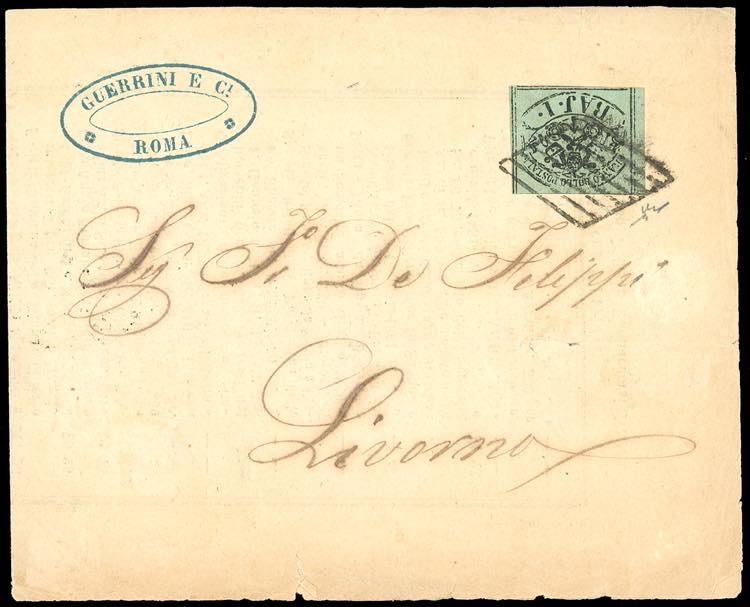 GUERRINI E Cⁱ
ROMA
BAJ. 1.
FRANCO BOLLO POSTALE
Sig Fr. De Filippi
Livorno